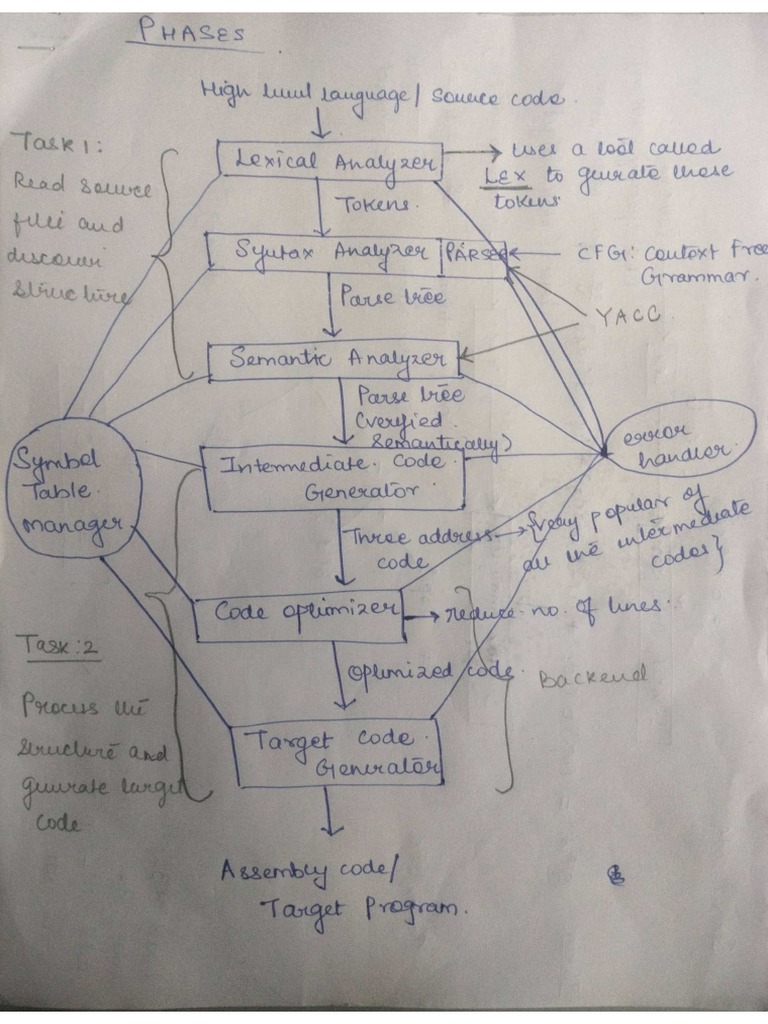 PHASES
High level language / source code.
Task 1:
Read source
files and
discover
structure
Lexical Analyzer
Uses a tool called
LEX to generate these
tokens
Tokens.
Syntax Analyzer
PARSER
CFG: Context Free
Grammar.
Parse tree
YACC
Semantic Analyzer
Parse tree
(verified
semantically)
error
handler.
Symbol
Table
manager
Intermediate Code
Generator
Three address
code
{very popular of
all the intermediate
codes}
Code optimizer
reduce no. of lines.
Task:2
Process the
structure and
generate target
code
Optimized code.
Backend
Target Code
Generator
Assembly code/
Target Program.